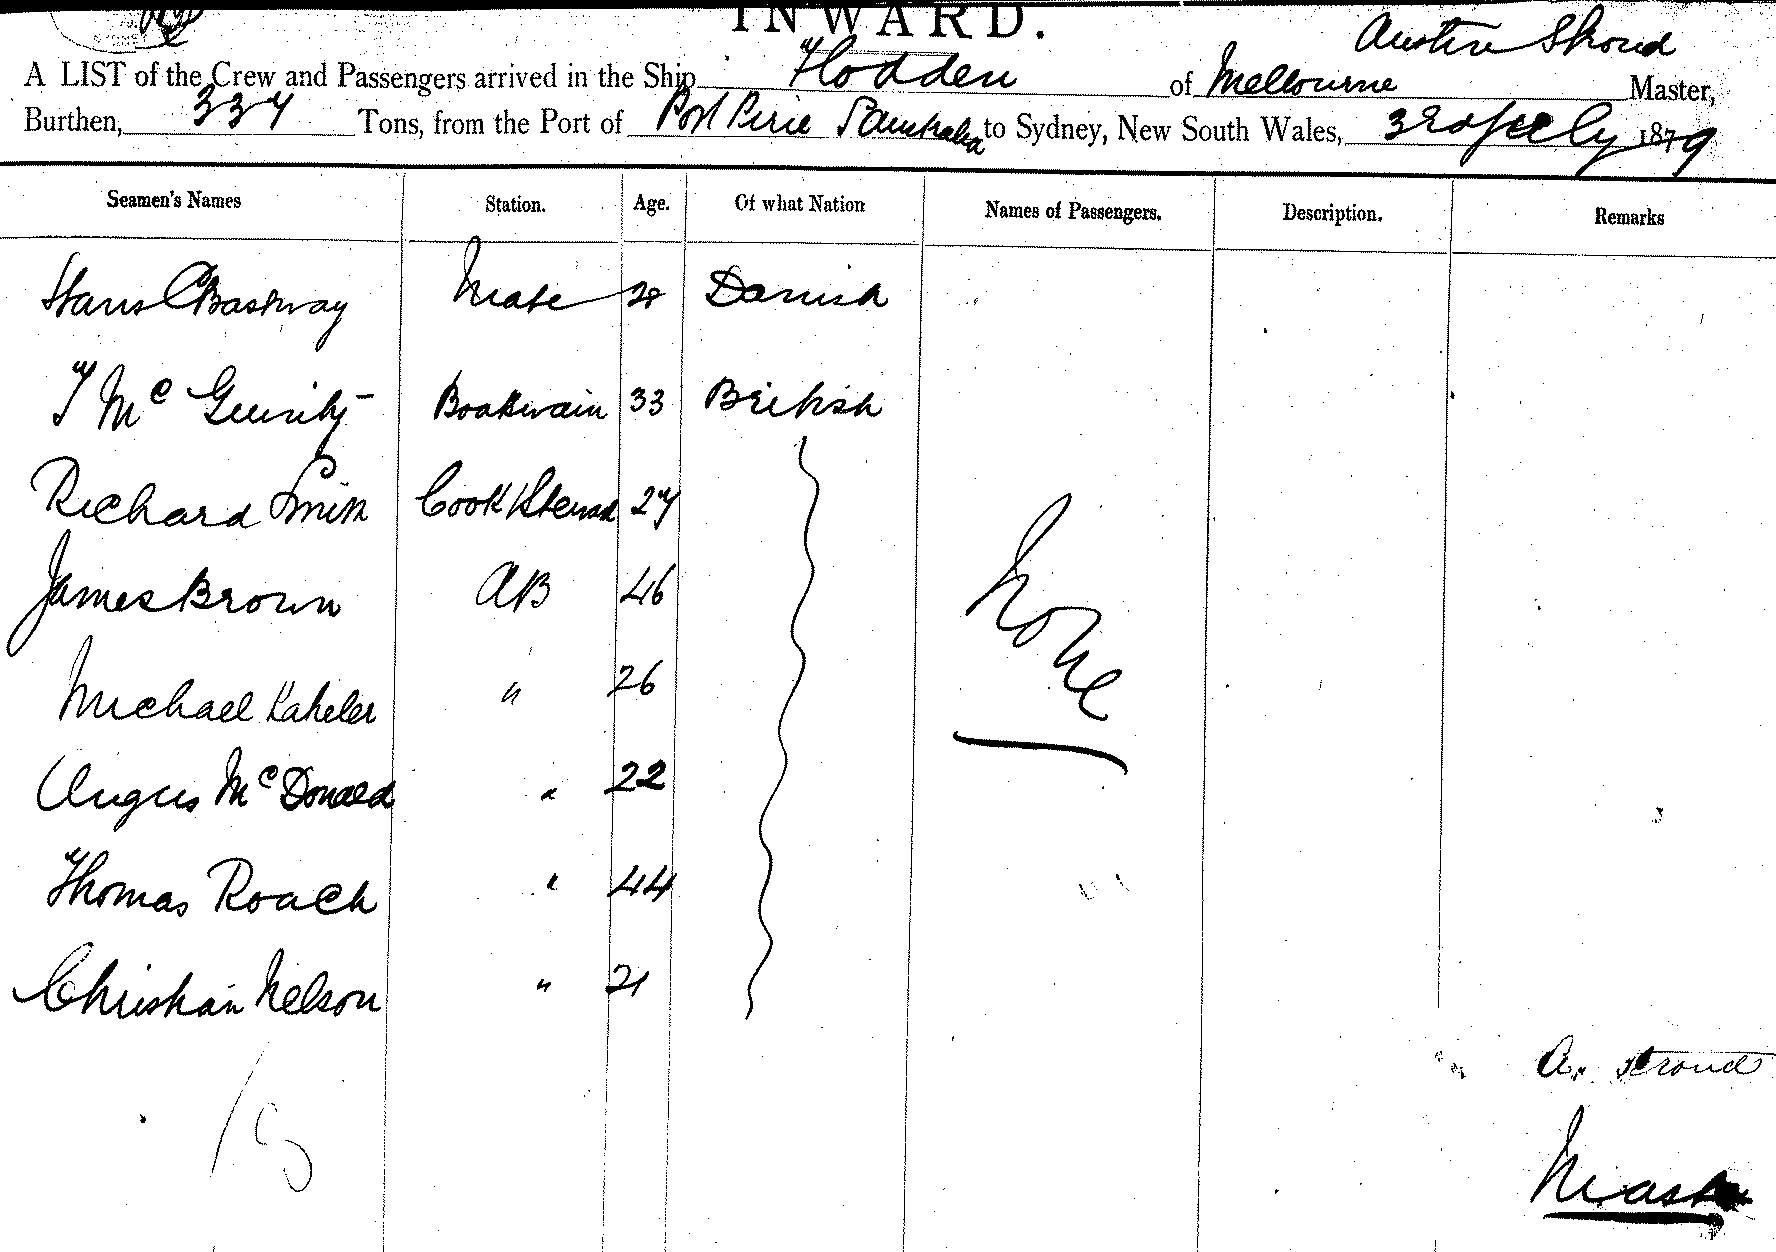 INWARD.
Austin Stroud
A LIST of the Crew and Passengers arrived in the Ship Flodden of Melbourne Master,
Burthen, 337 Tons, from the Port of Port Pirie S Australia to Sydney, New South Wales, 3rd of July 1879
Seamen's Names Station. Age. Of what Nation Names of Passengers. Description. Remarks
Hans Mate 28 Danish
T Mc Boatswain 33 British
Richard Smith Cook & Steward 27
James Brown AB 46
None
Michael " 26
Angus McDonald " 22
Thomas Roach " 44
Christian Nelson " 21
A. Stroud
Master